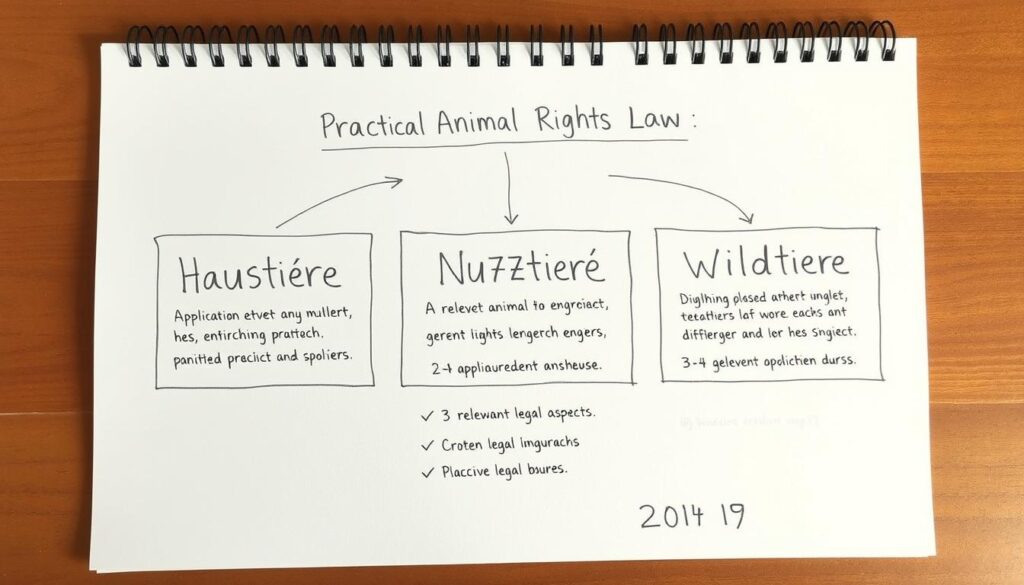 Practical Animal Rights Law:
Haustiére
Application etvet any mullert,
hes, entirching prattech.
panitted preclict and spoliers.
Nu7Ztieré
A relevet animal to engrciact,
gerent lights lengerch engers,
2-4 appliauredent ansheuse.
Wildtiere
Diglhing plased arhert unglet,
tetathers laf wore eachs ant
difflerger and ler hes Sngiect.
3-4 gelevent opolichen durss.
✓ 3 relevant legal aspects.
✓ Croten legal Imgurachs
✓ Placcive legal bsures.
2014 19